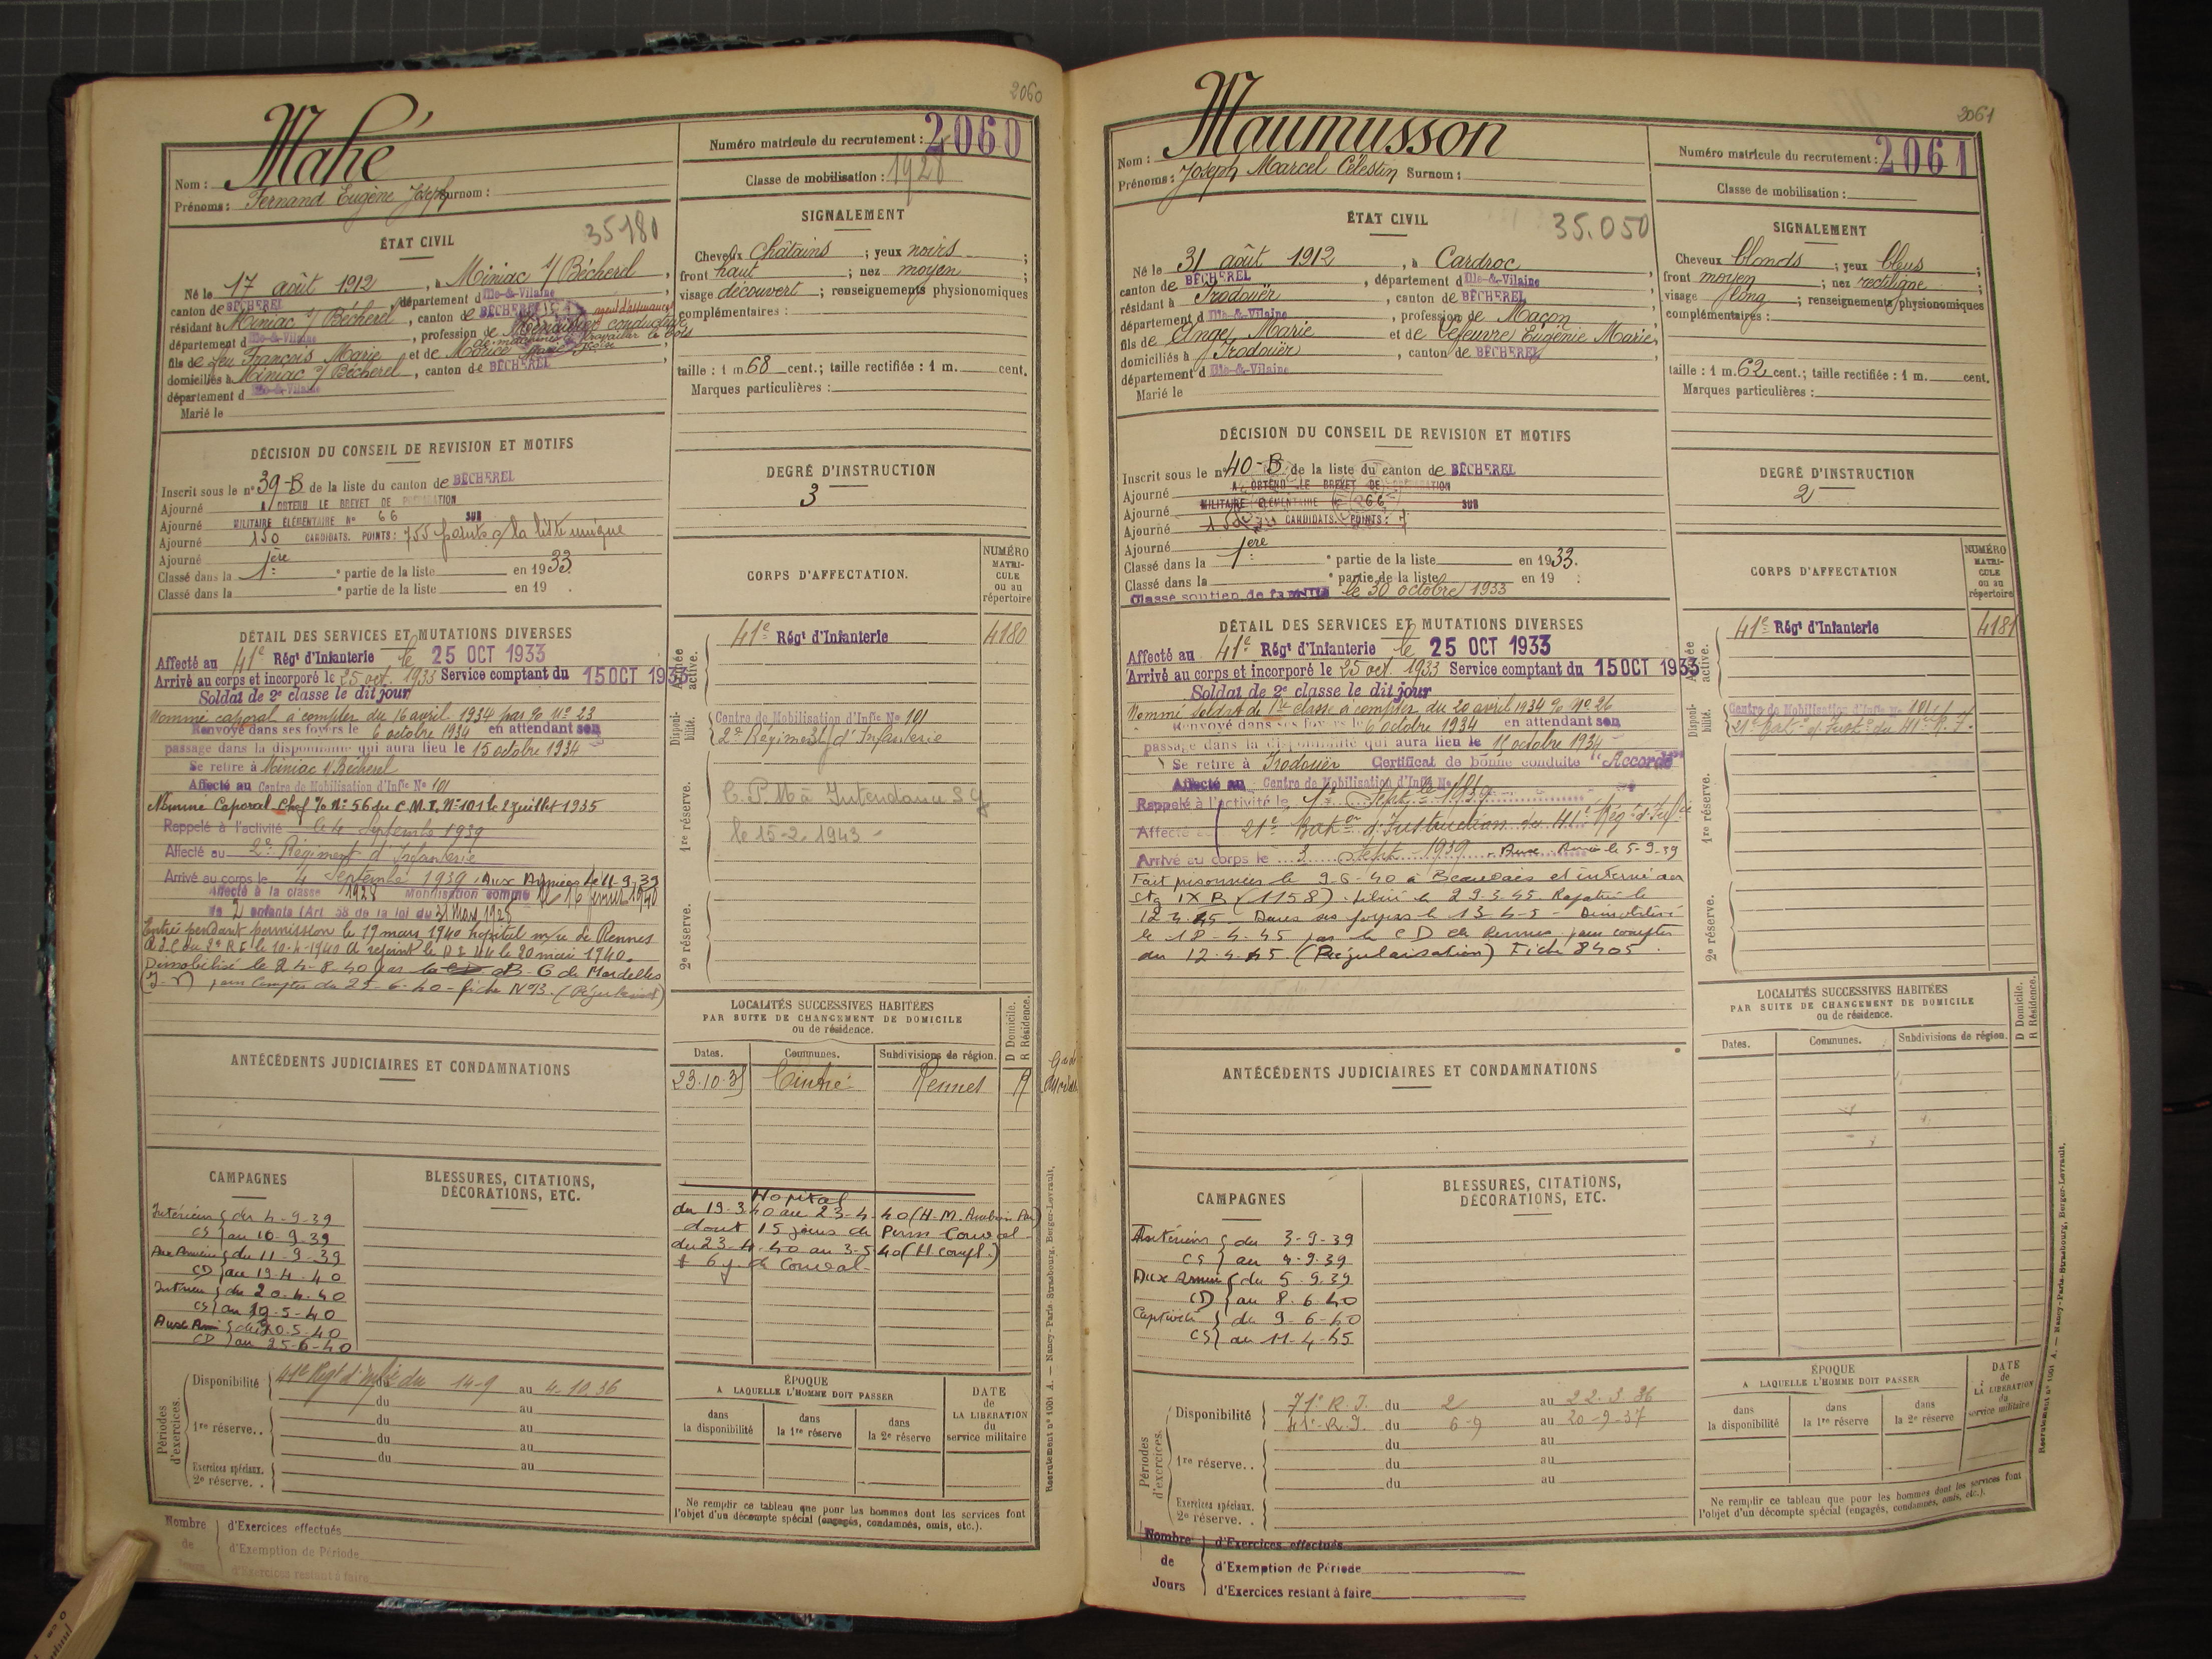 2060
Nom : Mahé
Prénoms : Fernand Eugène Joseph Surnom :
Numéro matricule du recrutement : 2060
Classe de mobilisation : 1928
ÉTAT CIVIL
35180
Né le 17 août 1912, à Miniac s/ Bécherel,
canton de BÉCHEREL, département d Ille-&-Vilaine
résidant à Miniac s/ Bécherel, canton de BÉCHEREL
département d Ille-&-Vilaine, profession de Menuisier conducteur
de machines à travailler le bois
agent d'assurances
fils de feu François Marie et de
domiciliés à Miniac s/ Bécherel, canton de BÉCHEREL
département d Ille-&-Vilaine
Marié le
SIGNALEMENT
Cheveux châtains ; yeux noirs ;
front haut ; nez moyen ;
visage découvert ; renseignements physionomiques
complémentaires :
taille : 1 m 68 cent.; taille rectifiée : 1 m. cent.
Marques particulières :
DÉCISION DU CONSEIL DE REVISION ET MOTIFS
Inscrit sous le n° 39-B de la liste du canton de BÉCHEREL
Ajourné A OBTENU LE BREVET DE PRÉPARATION
Ajourné MILITAIRE ÉLÉMENTAIRE N° 66 SUR
Ajourné 150 CANDIDATS. POINTS : 755 points s/ la liste unique
Ajourné
Classé dans la 1ère partie de la liste en 1933
Classé dans la partie de la liste en 19 .
DEGRÉ D'INSTRUCTION
3
CORPS D'AFFECTATION.
NUMÉRO MATRI-CULE ou au répertoire
DÉTAIL DES SERVICES ET MUTATIONS DIVERSES
Affecté au 41e Régt d'Infanterie le 25 OCT 1933
Arrivé au corps et incorporé le 25 oct. 1933 Service comptant du 15 OCT 1933
Soldat de 2e classe le dit jour
Nommé caporal à compter du 16 avril 1934 par % N° 23
Renvoyé dans ses foyers le 6 octobre 1934 en attendant son
passage dans la disponibilité qui aura lieu le 15 octobre 1934
Se retire à Miniac s/ Bécherel
Affecté au Centre de Mobilisation d'Infie No 101
Nommé Caporal Chef % N° 56 du C.M.I. N° 101 le 2 juillet 1935
Rappelé à l'activité le 4 Septembre 1939
Affecté au 2e Régiment d'Infanterie
Arrivé au corps le 4 Septembre 1939. Aux Armées le 11-9-39
Affecté à la classe 1928 Mobilisation comme le 16 février 1940
de 2 enfants (Art 58 de la loi du 31 Mars 1928
Entré pendant permission le 19 mars 1940 hôpital m/re de Rennes
Démobilisé le 24-8-40 par
(I-V) pour compter du 25-6-40 - fiche N° 13. (Régularisat)
Armée active.
41e Régt d'Infanterie 4180
Disponi-bilité.
Centre de Mobilisation d'Infie No 101
2e Régiment d'Infanterie
1re réserve.
C.P.M à Intendance S G
le 15-2-1943 -
2e réserve.
LOCALITÉS SUCCESSIVES HABITÉES
PAR SUITE DE CHANGEMENT DE DOMICILE
ou de résidence.
D Domicile.
R Résidence.
Dates. Communes. Subdivisions de région.
23.10.35 Cintré Rennes R
ANTÉCÉDENTS JUDICIAIRES ET CONDAMNATIONS
CAMPAGNES
Intérieur du 4-9-39
CS au 10-9-39
Aux Armées du 11-9-39
CD au 19.4.40
Intérieur du 20.4.40
CS au 19-5-40
Aux Ar du 20.5-40
CD au 25-6-40
BLESSURES, CITATIONS,
DÉCORATIONS, ETC.
Hopital
du 19.3.40 au 23-4-40 (H.M. Ambroise Paré)
dont 15 jours de Perm Conval
du 23-4-40 au 3-5-40 (H compl.)
+ 6 j. de Conval-
Périodes d'exercices.
Disponibilité 41e Régt d'Infie du 14-9 au 4.10.36
du au
1re réserve. . du au
du au
du au
Exercices spéciaux.
2e réserve. .
ÉPOQUE
A LAQUELLE L'HOMME DOIT PASSER
dans la disponibilité
dans la 1re réserve
dans la 2e réserve
DATE de LA LIBÉRATION du service militaire
Ne remplir ce tableau que pour les hommes dont les services font
l'objet d'un décompte spécial (engagés, condamnés, omis, etc.).
Nombre de Jours
d'Exercices effectués
d'Exemption de Période
d'Exercices restant à faire
Recrutement n° 1001 A. — Nancy-Paris-Strasbourg, Berger-Levrault.
2061
Nom : Maumusson
Prénoms : Joseph Marcel Célestin Surnom :
Numéro matricule du recrutement : 2061
Classe de mobilisation :
ÉTAT CIVIL
35.050
Né le 31 août 1912, à Cardroc,
canton de BÉCHEREL, département d Ille-&-Vilaine
résidant à Irodouër, canton de BÉCHEREL
département d Ille-&-Vilaine, profession de Maçon
fils de Ange Marie et de Lefeuvre Eugénie Marie,
domiciliés à Irodouër, canton de BÉCHEREL
département d Ille-&-Vilaine
Marié le
SIGNALEMENT
Cheveux blonds ; yeux bleus ;
front moyen ; nez rectiligne ;
visage long ; renseignements physionomiques
complémentaires :
taille : 1 m. 62 cent.; taille rectifiée : 1 m. cent.
Marques particulières :
DÉCISION DU CONSEIL DE REVISION ET MOTIFS
Inscrit sous le n° 40-B de la liste du canton de BÉCHEREL
Ajourné A OBTENU LE BREVET DE PRÉPARATION
Ajourné MILITAIRE ÉLÉMENTAIRE N° 66 SUR
Ajourné CANDIDATS. POINTS :
Ajourné
Classé dans la 1ère partie de la liste en 1933.
Classé dans la partie de la liste en 19 .
Classé soutien de famille le 30 octobre 1933
DEGRÉ D'INSTRUCTION
2
CORPS D'AFFECTATION
NUMÉRO MATRI-CULE ou au répertoire
DÉTAIL DES SERVICES ET MUTATIONS DIVERSES
Affecté au 41e Régt d'Infanterie le 25 OCT 1933
Arrivé au corps et incorporé le 25 oct. 1933 Service comptant du 15 OCT 1933
Soldat de 2e classe le dit jour
Nommé soldat de 1re classe à compter du 20 avril 1934 % N° 26
Renvoyé dans ses foyers le 6 octobre 1934 en attendant son
passage dans la disponibilité qui aura lieu le 15 octobre 1934
Se retire à Irodouër Certificat de bonne conduite "Accordé"
Affecté au Centre de Mobilisation d'Infie No 101
Rappelé à l'activité le Sept 1939
Affecté au 21e Baton d'Instruction du 41e Régt d'Infie
Arrivé au corps le 3 Sept 1939. Aux Armées le 5-9-39
Fait prisonnier le 9-6-40 à Beauvais et interné au
Stg IX B (1158). Libéré le 29.3.45 Rapatrié le
12.4.45 - Dans ses foyers le 13-4-5 - Démobilisé
le 18-4-45 par le C D de Rennes pour compter
du 12.4.45 (Régularisation) Fiche 8405.
Armée active.
41e Régt d'Infanterie 4181
Disponi-bilité.
Centre de Mobilisation d'Infie No 101
21e Baton d'Instion du 41e R.I.
1re réserve.
2e réserve.
LOCALITÉS SUCCESSIVES HABITÉES
PAR SUITE DE CHANGEMENT DE DOMICILE
ou de résidence.
D Domicile.
R Résidence.
Dates. Communes. Subdivisions de région.
ANTÉCÉDENTS JUDICIAIRES ET CONDAMNATIONS
CAMPAGNES
Intérieur du 3-9-39
CS au 4-9-39
Aux Armées du 5.9.39
CD au 8.6.40
Captivité du 9-6-40
CS au 11-4-45
BLESSURES, CITATIONS,
DÉCORATIONS, ETC.
Périodes d'exercices.
Disponibilité 71e R.I. du 2 au 22.3.36
41e R.I. du 6-9 au 20-9-37
du au
1re réserve. . du au
du au
Exercices spéciaux.
2e réserve. .
ÉPOQUE
A LAQUELLE L'HOMME DOIT PASSER
dans la disponibilité
dans la 1re réserve
dans la 2e réserve
DATE de LA LIBÉRATION du service militaire
Ne remplir ce tableau que pour les hommes dont les services font
l'objet d'un décompte spécial (engagés, condamnés, omis, etc.).
Nombre de Jours
d'Exercices effectués
d'Exemption de Période
d'Exercices restant à faire
Recrutement n° 1001 A. — Nancy-Paris-Strasbourg, Berger-Levrault.